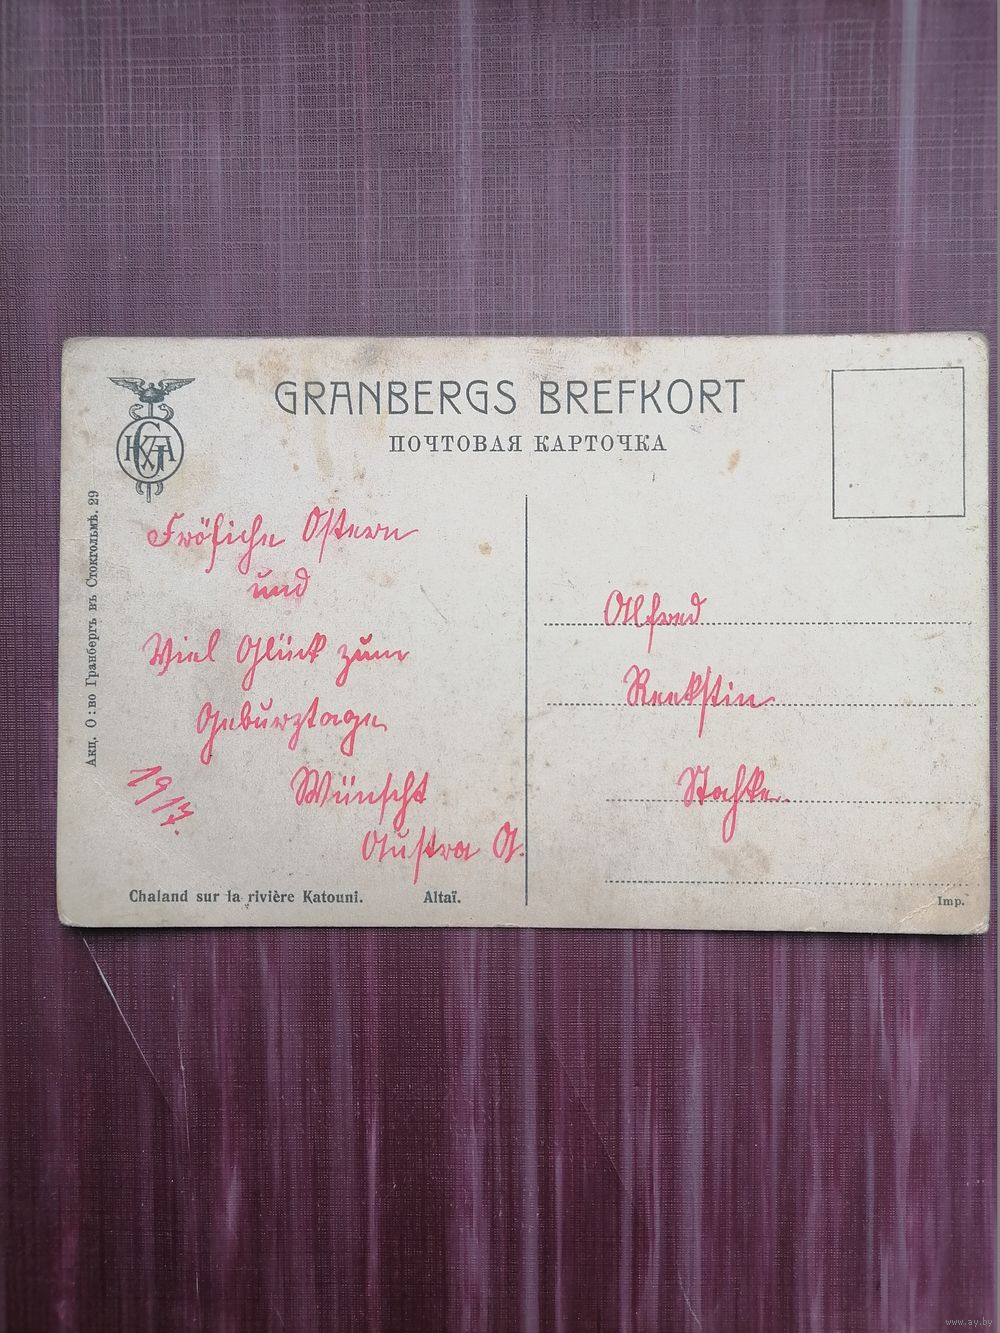 GRANBERGS BREFKORT
ПОЧТОВАЯ КАРТОЧКА
Акц. О:во Гранбергъ въ Стокгольмѣ. 29
Fröhliche Ostern
und
Viel Glück zum
Geburztage
Wünscht
Austra
1917.
Alfred
Chaland sur la rivière Katouni. Altaï.
Imp.
www.ay.by